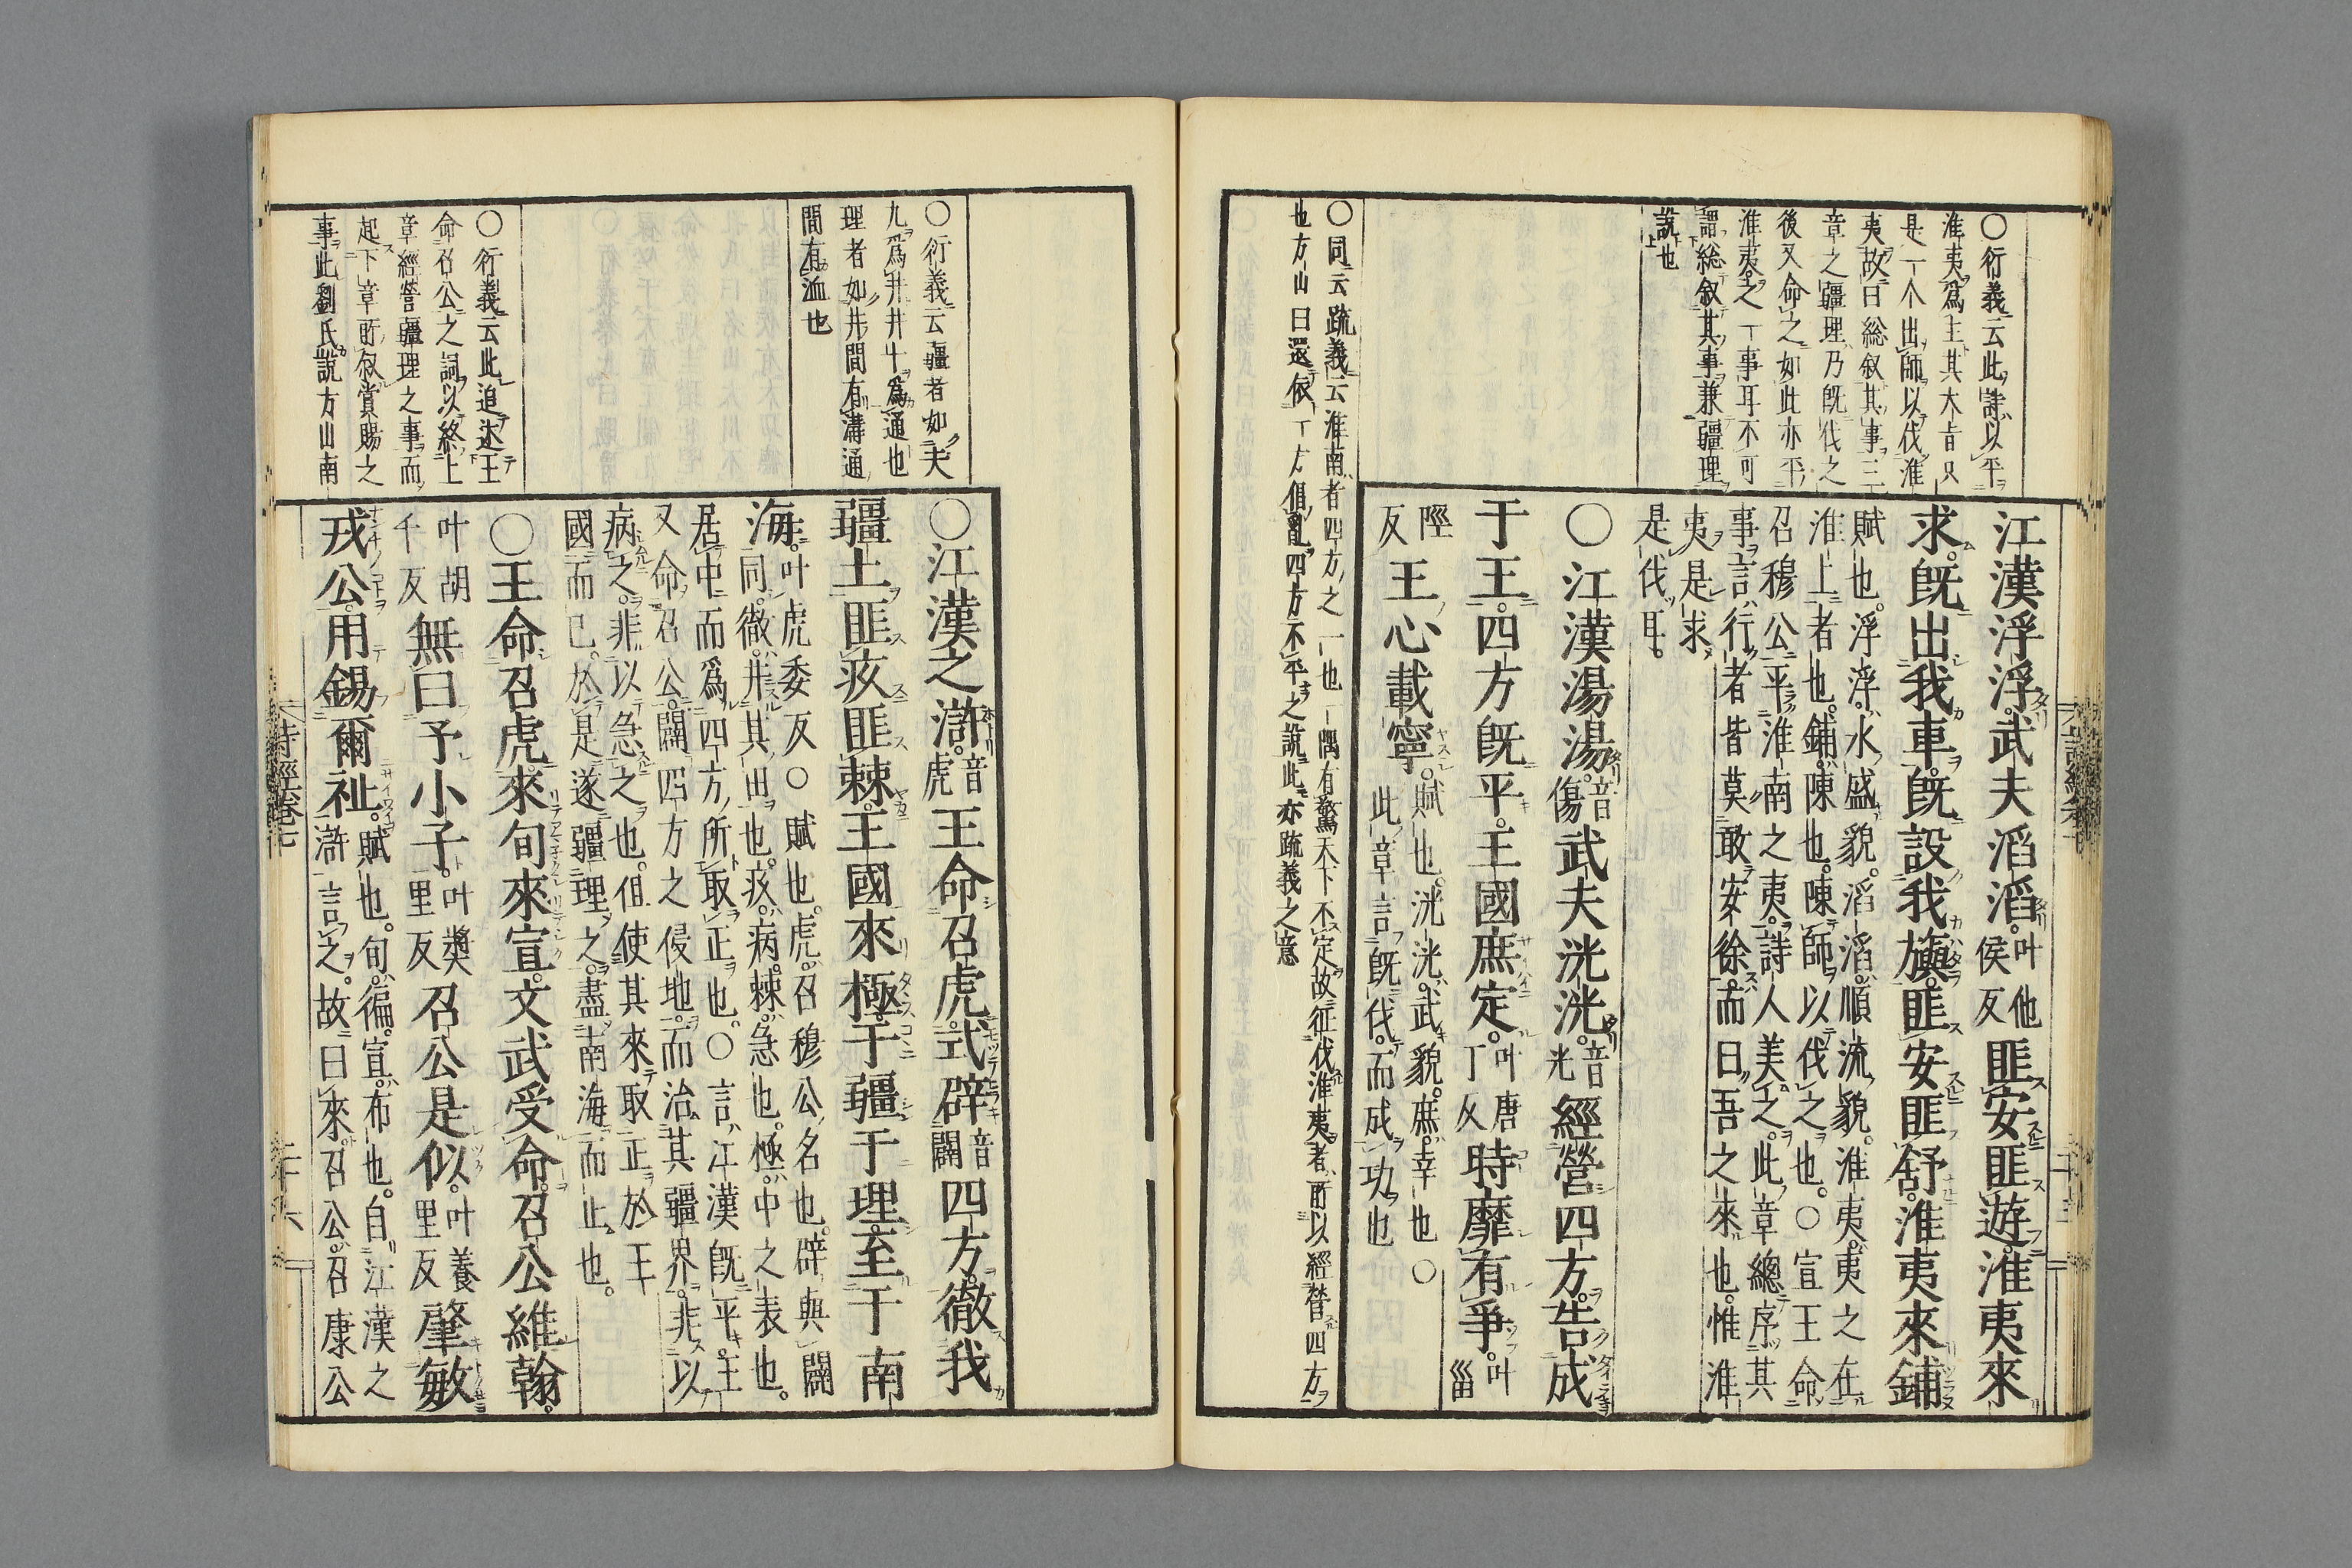 江漢浮浮武夫滔滔叶他侯反匪安匪遊淮夷來
求既出我車既設我旟匪安匪舒淮夷來鋪
賦也浮浮水盛貌滔滔順流貌淮夷夷之在
淮上者也鋪陳也陳師以伐之也〇宣王命
召穆公平淮南之夷詩人美之此章總序其
事言行者皆莫敢安徐而曰吾之來也惟淮
夷是求
是伐耳
〇江漢湯湯音傷武夫洸洸音光經營四方告成
于王四方既平王國庶定叶唐丁反時靡有爭叶甾
陘反王心載寧賦也洸洸武貌庶幸也〇
此章言既伐而成功也
〇衍義云此詩以平
淮夷為主其大旨只
是一个出師以伐淮
夷故曰総叙其事三
章之疆理乃既伐之
後又命之如此亦平
淮夷之一事耳不可
謂総叙其事兼疆理
說也
〇同云疏義云淮南者四方之一也一隅有驚天下不定故征伐淮夷者所以經營四方
也方山曰還依丁方俱亂四方不平之說此亦疏義之意
〇江漢之滸音虎王命召虎式辟音闢四方徹我
疆土匪疚匪棘王國來極于疆于理至于南
海叶虎委反〇賦也虎召穆公名也辟與闢
同徹井其田也疚病棘急也極中之表也
居中而為四方所取正也〇言江漢既平王
又命召公闢四方之侵地而治其疆界非以
病之非以急之也但使其來取正於王
國而已於是遂疆理之盡南海而止也
〇王命召虎來旬來宣文武受命召公維翰
叶胡千反無曰予小子叶奬里反召公是似叶養里反肇敏
戎公用錫爾祉賦也旬徧宣布也自江漢之
滸言之故曰來召公召康公
〇衍義云疆者如夫
九為井井十為通也
理者如井間有溝通
間有洫也
〇衍義云此追述王
命召公之詞以終上
章經營疆理之事而
起下章所叙賞賜之
事此劉氏說方山南
詩經卷七